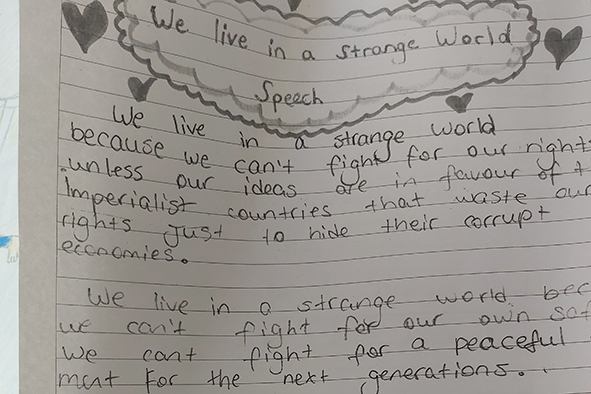 We live in a strange World
Speech
We live in a strange world
because we can't fight for our right
unless our ideas are in favour of t
Imperialist countries that waste our
rights Just to hide their corrupt
economies.
We live in a strange world. bec
we can't fight for our own saf
We cant fight for a peaceful
ment for the next generations..